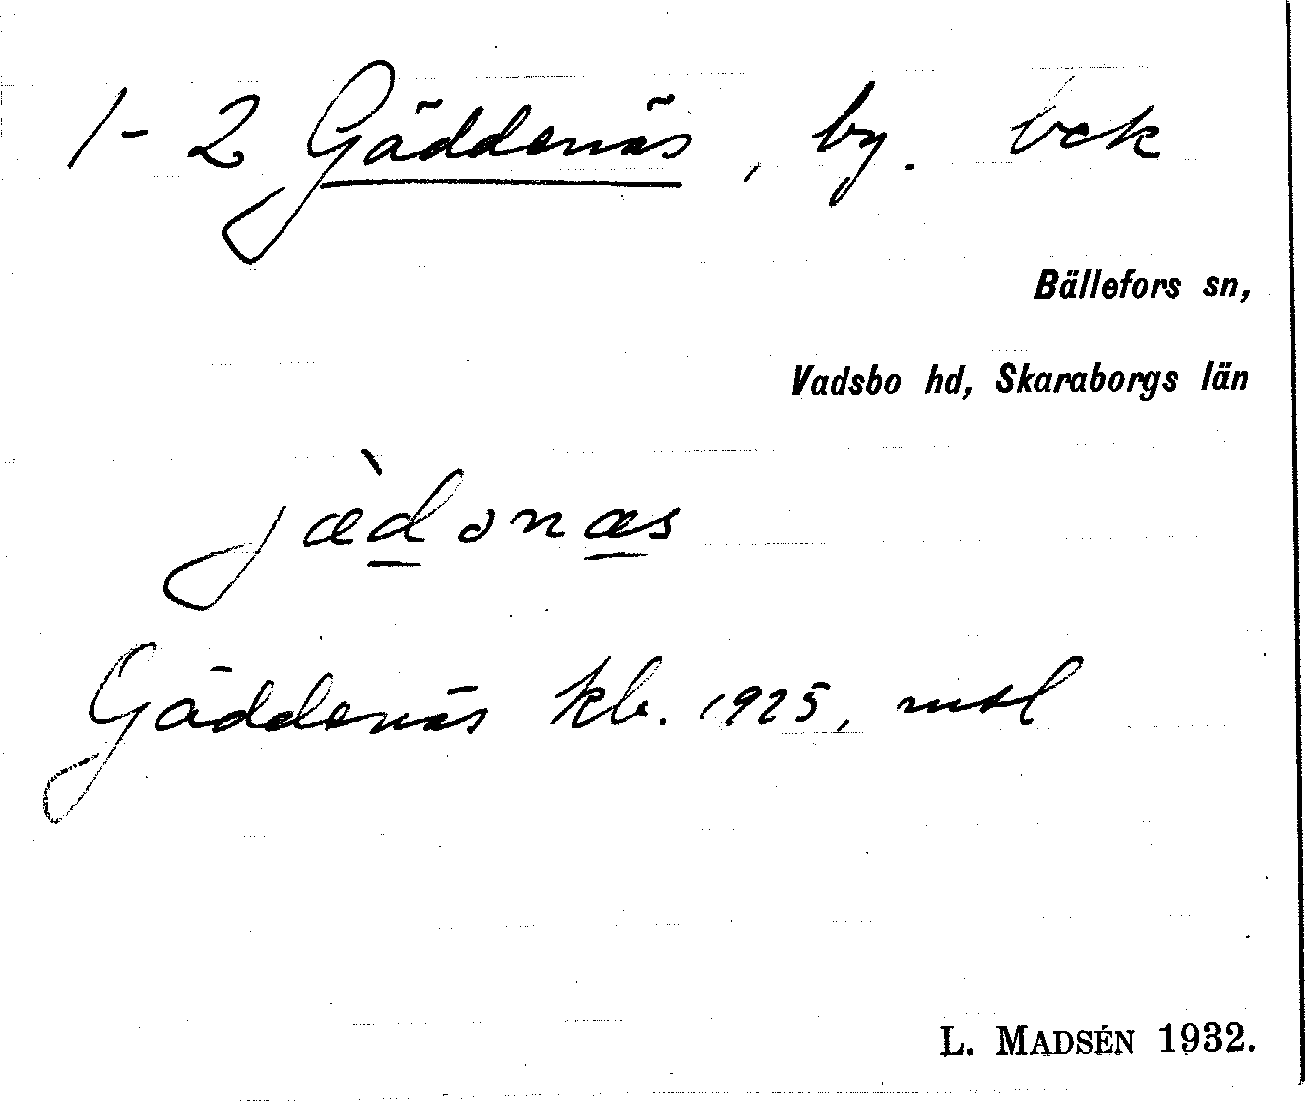 1-2 Gäddenäs, by. bek
Bällefors sn,
Vadsbo hd, Skaraborgs län
jæ̀dənæs
Gäddenäs kb. 1925, mtl
L. MADSÉN 1932.